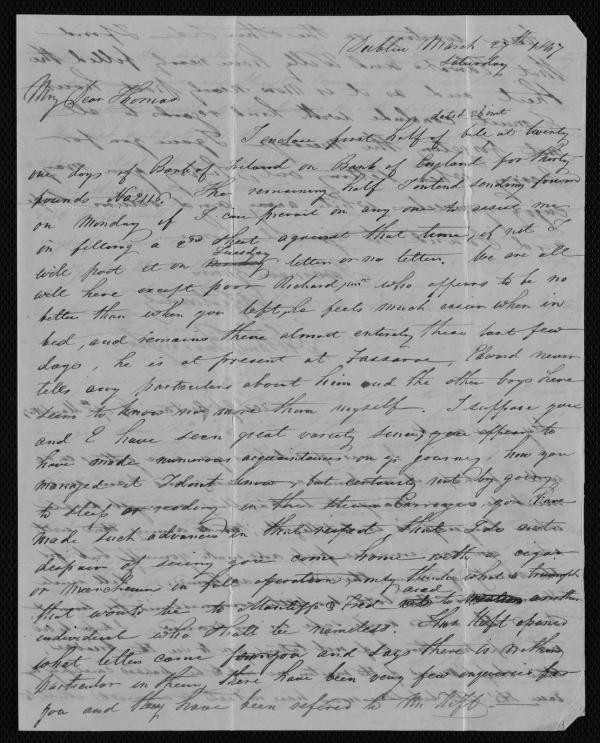 Dublin March 27th 1847
Saturday
My Dear Thomas
dated 26 inst
I enclose first half of bill at twenty
one days of Bank of Ireland on Bank of England for thirty
pounds No 2116. The remaining half I intend sending forward
on Monday if I can prevail on any one to assist me
in filling a 2nd sheet against that time, if not I
Tuesday
will post it on letter or no letter. We are all
well here except poor Richard junr who appears to be no
better than when you left, he feels much easier when in
bed, and remains there almost entirely these last few
days, he is at present at Fassaroe, Edward never
tells any particulars about him and the other boys here
seem to know no more than myself. I suppose you
and E have seen great variety since, you appear to
have made numerous acquaintances on yr journey, how you
managed it I dont know, but certainly not by going
to sleep or reading in the Carriages, you have
made such advances in that respect that I do not
despair of seeing you come home with a cigar
or in full operation, only think what a triumph
that would be to & Fred and to another
individual who shall be nameless. Hoft opened
what letters came for you and says there is nothing
particular in them, there have been very few inquiries for
you and they have been referred to Mr Hoft.